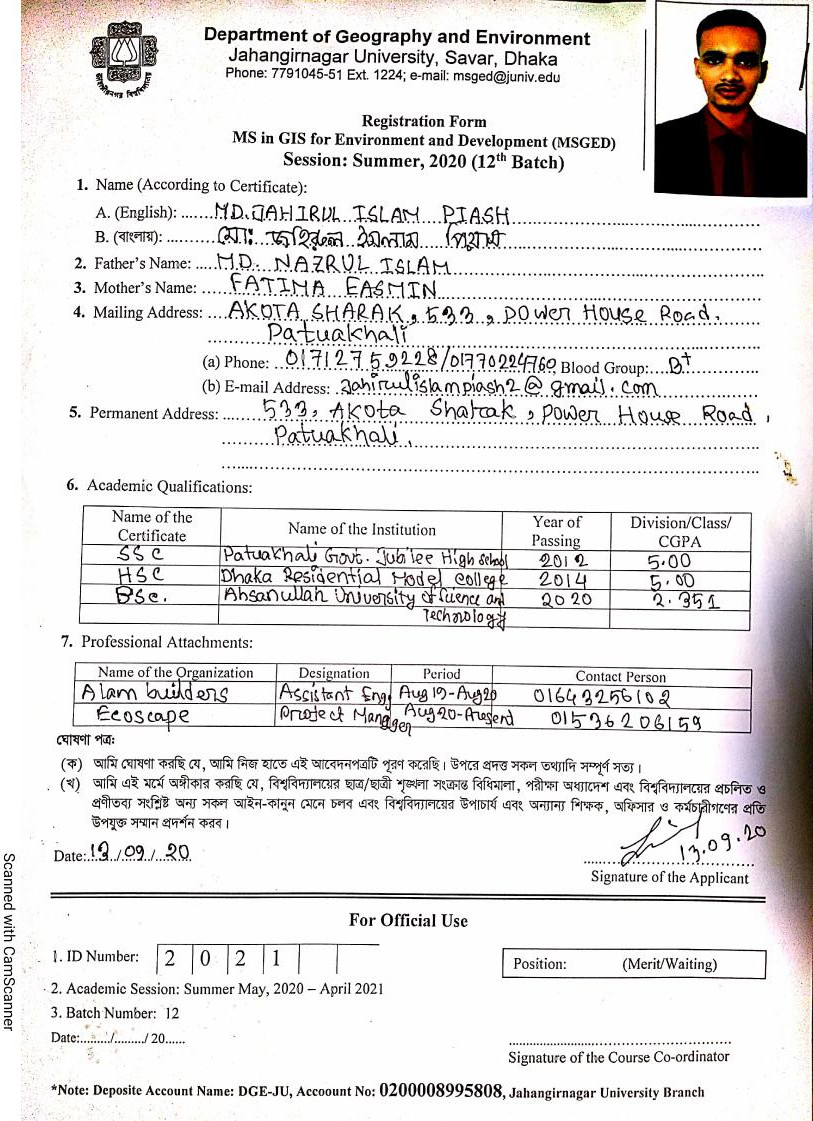 Department of Geography and Environment
Jahangirnagar University, Savar, Dhaka
Phone: 7791045-51 Ext. 1224; e-mail: msged@juniv.edu
Registration Form
MS in GIS for Environment and Development (MSGED)
Session: Summer, 2020 (12th Batch)
1. Name (According to Certificate):
A. (English): MD. JAHIRUL ISLAM PIASH
B. (বাংলায়): মোঃ জহিরুল ইসলাম পিয়াশ
2. Father's Name: MD. NAZRUL ISLAM
3. Mother's Name: FATIMA EASMIN
4. Mailing Address: AKOTA SHARAK, 533, Power House Road,
Patuakhali
(a) Phone: 01712759228/01770224760 Blood Group: B+
(b) E-mail Address: Jahirulislampiash2@gmail.com
5. Permanent Address: 533, AKota Sharak, Power House Road,
Patuakhali.
6. Academic Qualifications:
Name of the Certificate Name of the Institution Year of Passing Division/Class/CGPA
SSC Patuakhali Govt. Jubilee High School 2012 5.00
HSC Dhaka Residential Model college 2014 5.00
BSc. Ahsanullah University of Science and 2020 2.351
Technology
7. Professional Attachments:
Name of the Organization Designation Period Contact Person
Alam builders Assistant Eng. Aug 19-Aug20 01643256102
Ecoscape Project Manager Aug20-Present 01536206159
ঘোষণা পত্র:
(ক) আমি ঘোষণা করছি যে, আমি নিজ হাতে এই আবেদনপত্রটি পূরণ করেছি। উপরে প্রদত্ত সকল তথ্যাদি সম্পূর্ণ সত্য।
(খ) আমি এই মর্মে অঙ্গীকার করছি যে, বিশ্ববিদ্যালয়ের ছাত্র/ছাত্রী শৃঙ্খলা সংক্রান্ত বিধিমালা, পরীক্ষা অধ্যাদেশ এবং বিশ্ববিদ্যালয়ের প্রচলিত ও
প্রণীতব্য সংশ্লিষ্ট অন্য সকল আইন-কানুন মেনে চলব এবং বিশ্ববিদ্যালয়ের উপাচার্য এবং অন্যান্য শিক্ষক, অফিসার ও কর্মচারীগণের প্রতি
উপযুক্ত সম্মান প্রদর্শন করব।
13.09.20
Date: 13/09/20.
Signature of the Applicant
For Official Use
1. ID Number: 2 0 2 1
Position: (Merit/Waiting)
2. Academic Session: Summer May, 2020 – April 2021
3. Batch Number: 12
Date:......../......../ 20......
Signature of the Course Co-ordinator
*Note: Deposite Account Name: DGE-JU, Accoount No: 0200008995808, Jahangirnagar University Branch
Scanned with CamScanner